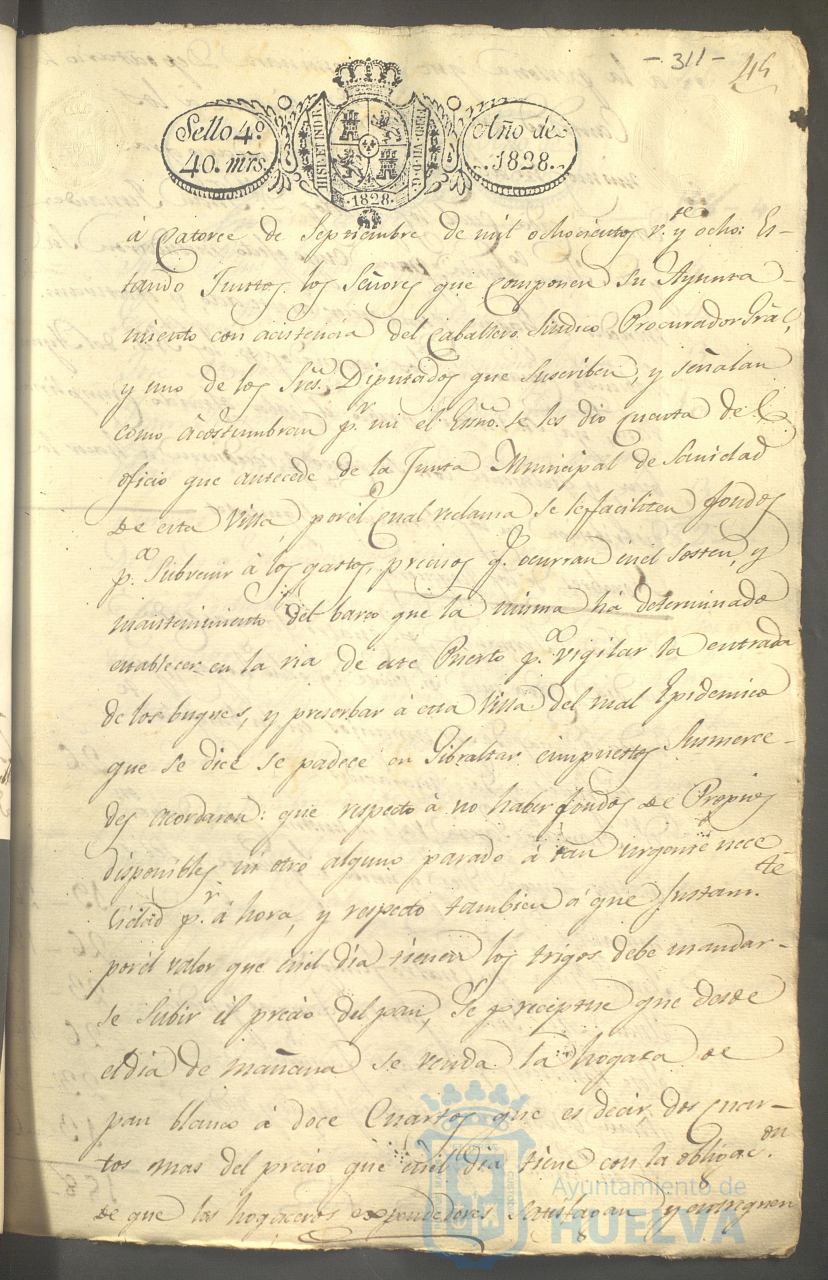 - 311 - 45
Sello 4º
40. mrs.
HISP. ET IND. R.
FERD. VII. D. G.
Año de
1828.
1828.
á Catorce de Septiembre de mil ochocientos v.te y ocho: Es-
tando Juntos los Señores que componen su Ayunta-
miento con acistencia del Caballero Sindico Procurador Grãl,
y uno de los Sres. Diputados que suscriben, y señalan
como acostumbran p.r mi el Esño. se les dio cuenta del
oficio que antecede de la Junta Municipal de Sanidad
de esta Villa, por el cual reclama se le faciliten fondos
p.a Subvenir á los gastos precisos q.e ocurran en el sosten, y
mantenimiento del barco que la misma há determinado
establecer en la ria de este Puerto p.a vigilar la entrada
de los buques, y preserbar á esta Villa del mal Epidemico
que se dice se padece en Gibraltar. e impuestos Sumerce-
des acordaron: que respecto á no haber fondos de Propios
disponibles ni otro alguno parado á tan urgente nece-
cidad p.r á hora, y respecto tambien á que Justam.te
por el valor que en el dia tienen los trigos debe mandar-
se subir el precio del pan, Se preceptue que desde
el dia de mañana se venda la hogasa de
pan blanco á doce Cuartos que es decir dos cuar-
tos mas del precio que en el dia tiene con la obligac.on
de que los hogaceros expendedores Satisfagan y entreguen
Ayuntamiento de
HUELVA